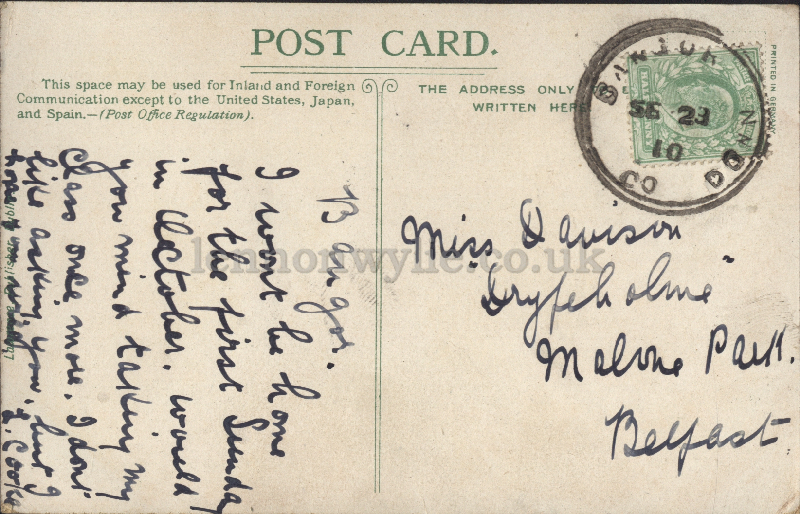 POST CARD.
This space may be used for Inland and Foreign
Communication except to the United States, Japan,
and Spain.—(Post Office Regulation).
THE ADDRESS ONLY
WRITTEN HERE
PRINTED IN GERMANY
BANGOR
SE 23
DOWN
lennonwylie.co.uk
Bangor.
I wont be home
for the first Sunday
in October. would
you mind taking my
Class once more. I dont
like asking you, but I
hope
Miss Davison
"Dryfeholme"
Malone Park.
Belfast